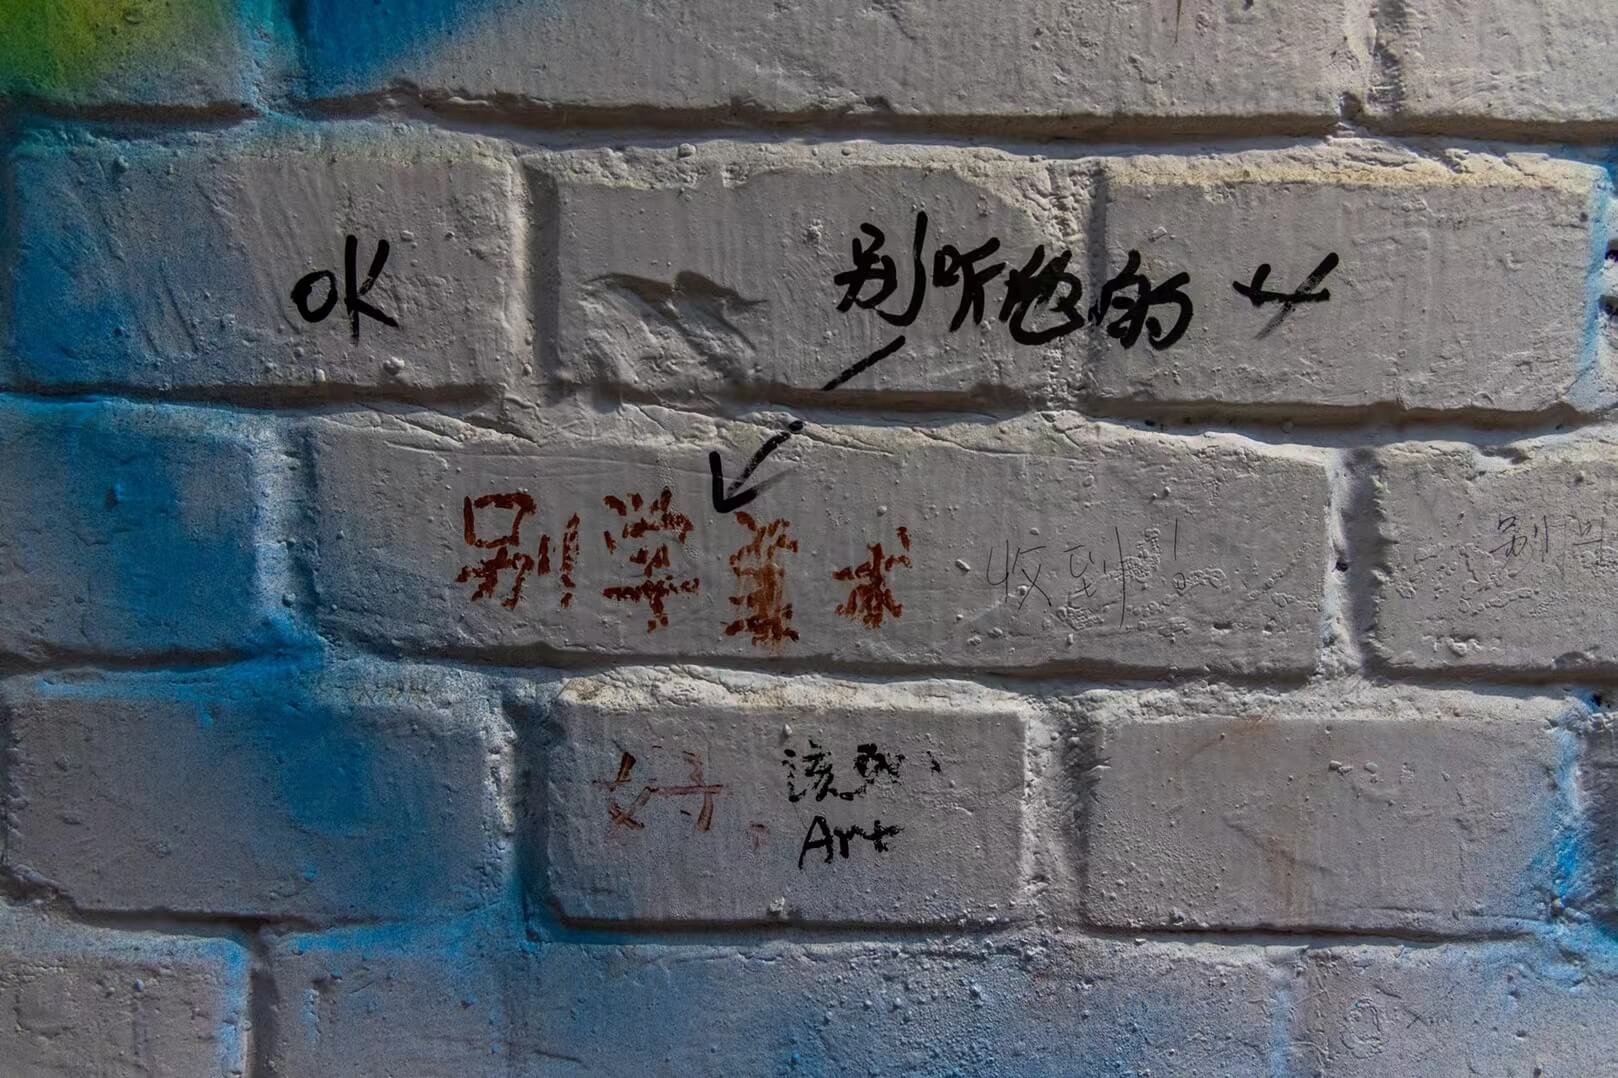 OK
别听他的
别学美术
收到!
别学
好
该死
Art